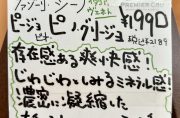 ファンソーリ・シーノ
イタリア ヴェネト ¥1990
ピージョ ピノ・グリージョ 税込¥2189
存在感ある爽快感!
じわじわしみるミネラル感!
濃密に凝縮した